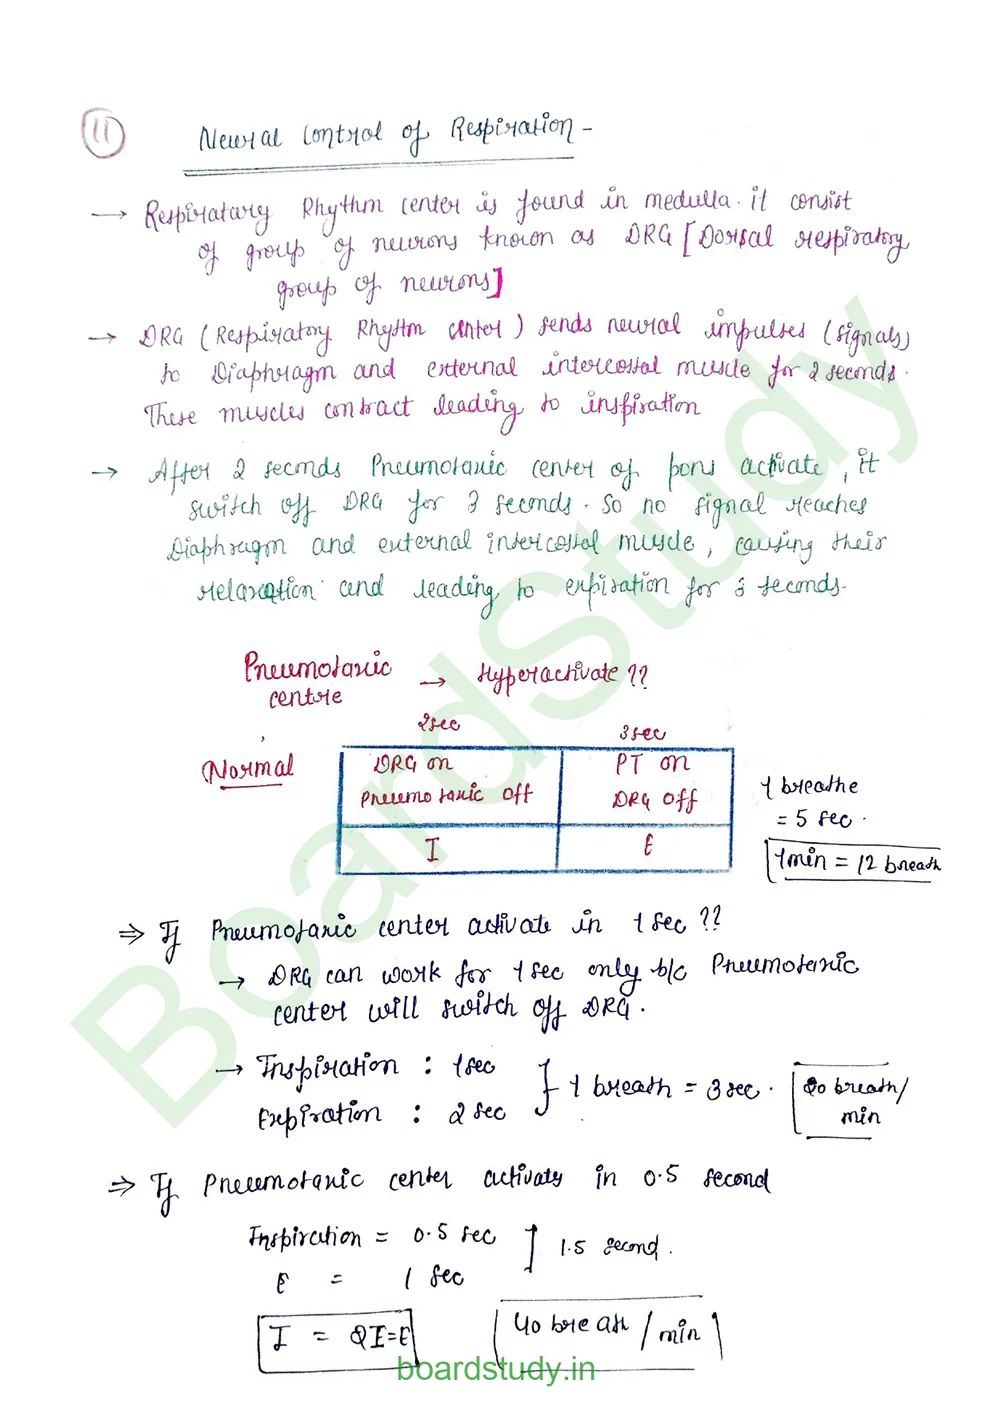 11
Neural Control of Respiration -
→ Respiratary Rhythm center is found in medulla. it consist
of group of neurons known as DRG [Dorsal respiratory
group of neurons]
→ DRG (Respiratory Rhythm center) sends neural impulses (signals)
to Diaphragm and external intercostal muscle for 2 seconds.
These muscles contract leading to inspiration
→ After 2 seconds Pneumotaxic center of pons activate, it
switch off DRG for 3 seconds. So no signal reaches
Diaphragm and external intercostal muscle, causing their
relaxation and leading to expiration for 3 seconds.
Pneumotaxic centre → Hyperactivate ??
2sec 3sec
Normal
DRG on PT on
Pneumotaxic off DRG off
I E
1 breathe
= 5 sec.
1min = 12 breath
⇒ If Pneumotaxic center activate in 1 sec ??
→ DRG can work for 1 sec only b/c Pneumotaxic
center will switch off DRG.
→ Inspiration : 1sec
Expiration : 2 sec
} 1 breath = 3 sec. 20 breath/
min
⇒ If Pneumotaxic center activate in 0.5 second
Inspiration = 0.5 sec
E = 1 sec
] 1.5 second.
I = 2I=E
40 breath / min
BoardStudy
boardstudy.in